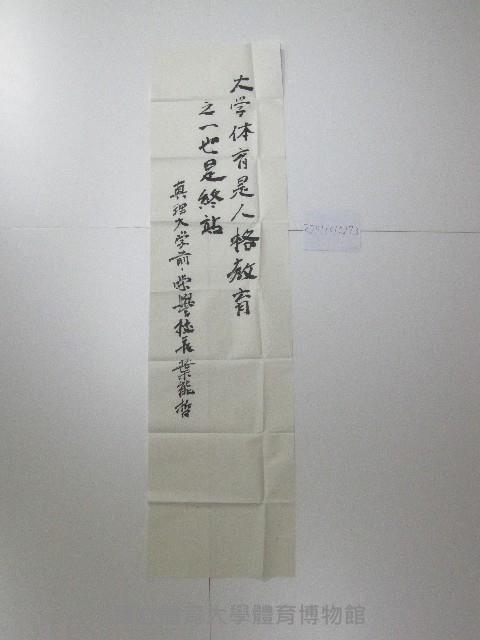 大学体育是人格教育
之一也是終站
真理大学前、榮譽校長葉能哲
體育大學體育博物館